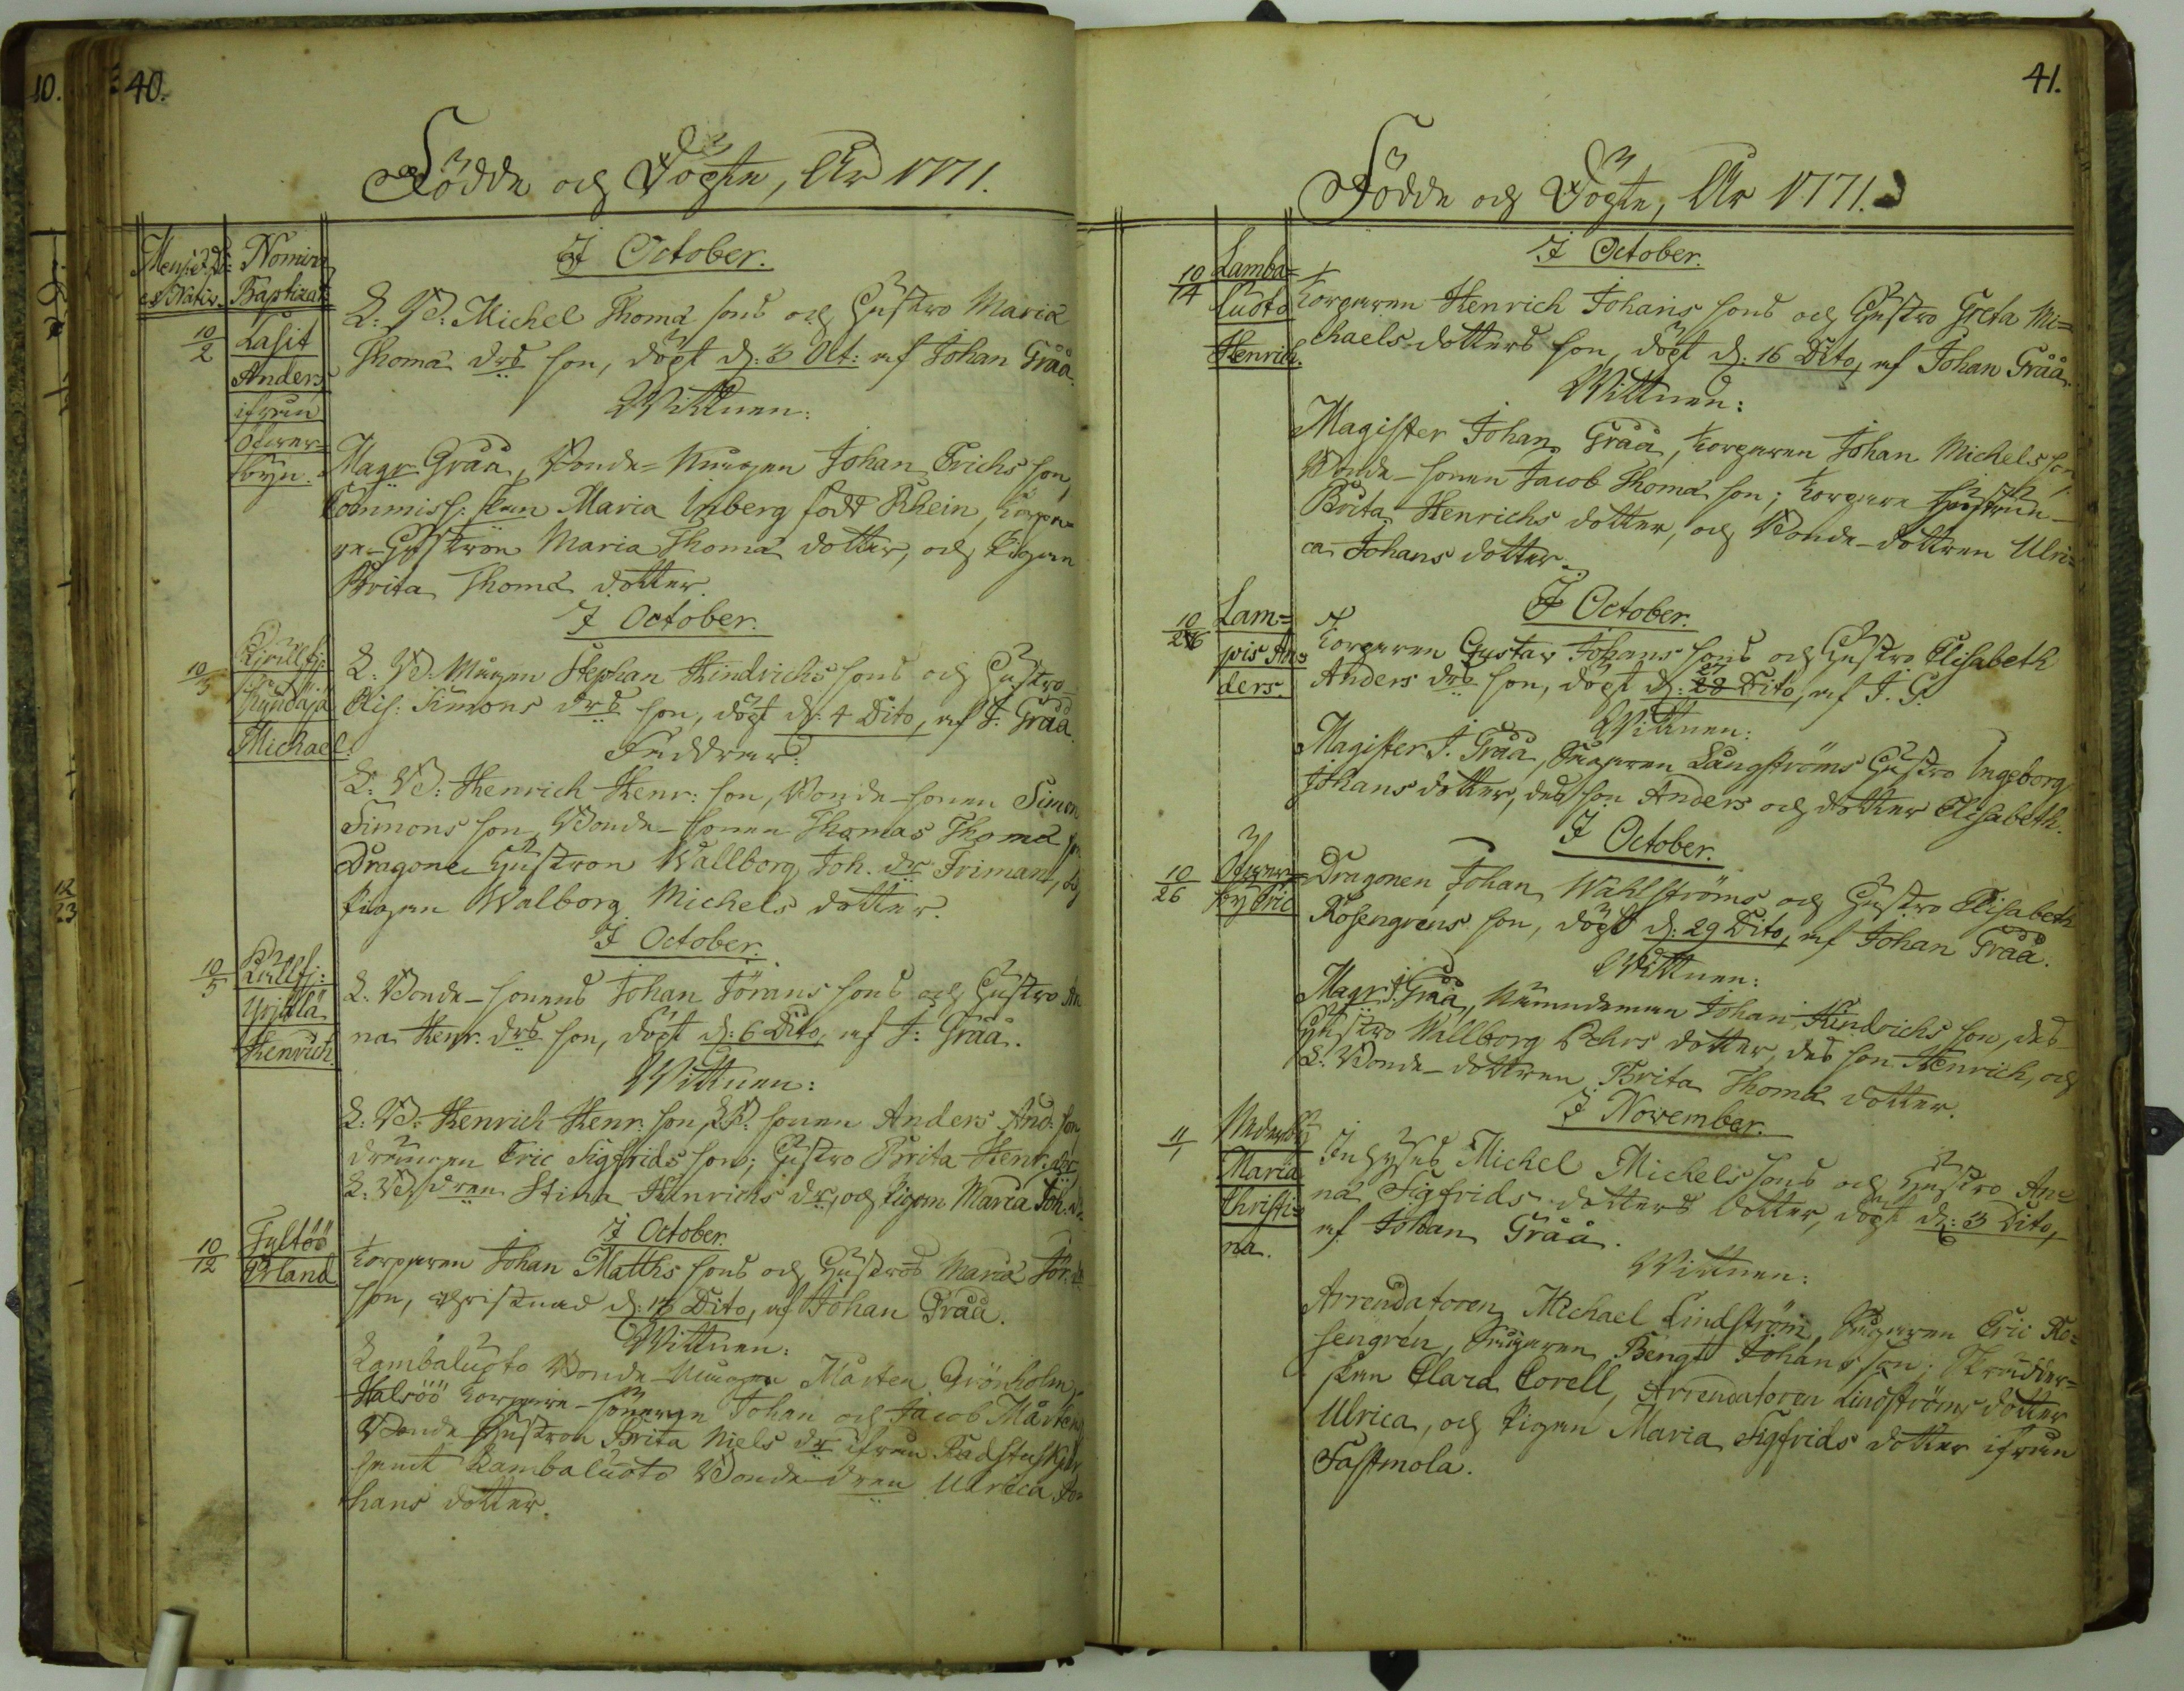 40.
Födde och Döpte, År 1771.
Mens: et Di:
es Nativ.
Nomina
Baptizat:
I October.
10/2
Lasit
Anders
ifrån
Öfver-
byn.
L: B: Michel Thomæ sons och Hustro Maria
Thomæ drs son, döpt d: 3 Oct: af Johan Gråå.
Wittnen:
Magr Gråå, Bonde-Mågen Johan Erichs son,
Commiss: skan Maria Inberg född Rhein, Torpa-
re-Hustron Maria Thomæ dotter, och Pigan
Brita Thomæ dotter.
I October.
10/3
Michael.
L: B. Mågen Stephan Hindrichs sons och Hustro
Elis: Simons drs son, döpt d: 4 Dito, af J: Gråå.
Faddrar:
L: B: Henrich Henr: son, Bonde-sonen Simon
Simons son, Bonde-sonen Thomas Thomæ
Dragone Hustron Wallborg Joh. dr Friman,
Pigan Walborg Michels dotter.
I October.
10/5
Yrjälä
Henrich.
L: Bonde-sonens Johan Jörans sons och Hustro An
na Henr. drs son, döpt d: 6 Dito, af J: Gråå.
Wittnen:
L: B: Henrich Henr: son, L: B: sonen Anders And: son
drängen Eric Sigfrids son; Hustro Brita Henr: dr
L: B: dren Stina Henrichs dr, och Pigan Maria Joh:
I October.
10/12
Fyltöö
Erland
Torparen Johan Matths sons och Hustros Maria Jör:
son, christnad d: 13 Dito, af Johan Gråå.
Wittnen:
Lambaluoto Bonde-Mågen Mårten Grönholm,
Halsöö Torpare-sönerna Johan och Jacob Mårtens
Bonde Hustron Brita Niels dr ifrån Radstuskär
samt Lambaluoto Bonde-dren Ulrica Jo-
hans dotter.
41.
Födde och Döpte, År 1771.
I October.
10/14
Lamba-
luoto
Henrich.
Torparen Henrich Johans sons och Hustro Greta Mi-
chaels dotters son, döpt d: 16 Dito, af Johan Gråå.
Wittnen:
Magister Johan Gråå, Torparen Johan Michels son,
Bonde-sonen Jacob Thomæ son; Torpare Hustrun
Brita Henrichs dotter, och Bonde-dottren Ulri-
ca Johans dotter.
I October.
10/26
Lam-
pis An-
ders.
Torparen Gustav Johans sons och Hustro Elisabeth
Anders drs son, döpt d: 27 Dito, af J. G.
Wittnen:
Magister J. Gråå, Långströms Hustro Ingeborg
Johans dotter, des son Anders och dotter Elisabeth.
I October.
10/26
Öfver-
by Eric
Dragonen Johan Wahlströms och Hustro Elisabeth
Rosengrens son, döpt d: 29 Dito, af Johan Gråå.
Wittnen:
Magr J. Gråå, Nämndeman Johan Hindrichs son, des
Hustro Wallborg Pehrs dotter, des son Henrich, och
L: Bonde-dottren Brita Thomæ dotter.
I November.
11/1
Nederby
Maria
Christi-
na.
Inhyses Michel Michels sons och Hustro An-
na Sigfrids dotters dotter, döpt d: 3 Dito,
af Johan Gråå.
Wittnen:
Arrendatoren Michael Lindström, Eric Ro-
sengren, Bengt Johans son; Skräddar-
skan Clara Corell, Arrendatoren Lindströms dotter
Ulrica, och Pigan Maria Sigfrids dotter ifrån
Fastmola.